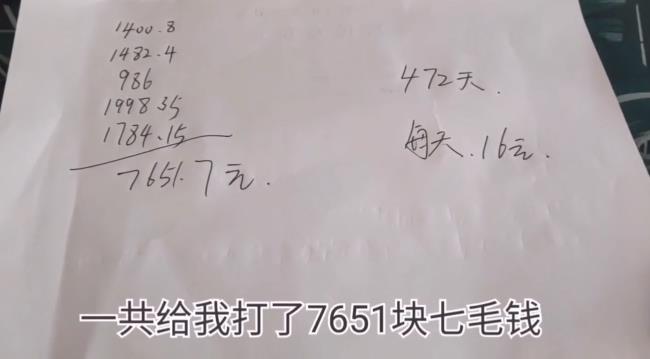 1400.8
1482.4
986
1998.35
1784.15
7651.7元.
472天.
每天.16元.
一共给我打了7651块七毛钱